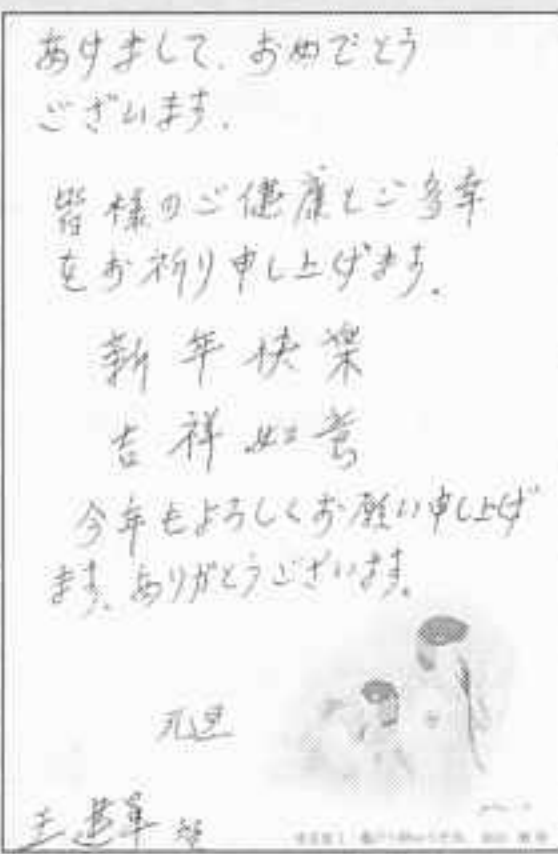 あけまして、おめでとう
ございます.
皆様のご健康とご多幸
をお祈り申し上げます.
新年快楽
吉祥如意
今年もよろしくお願い申し上げ
ます、ありがとうございます.
元旦
王